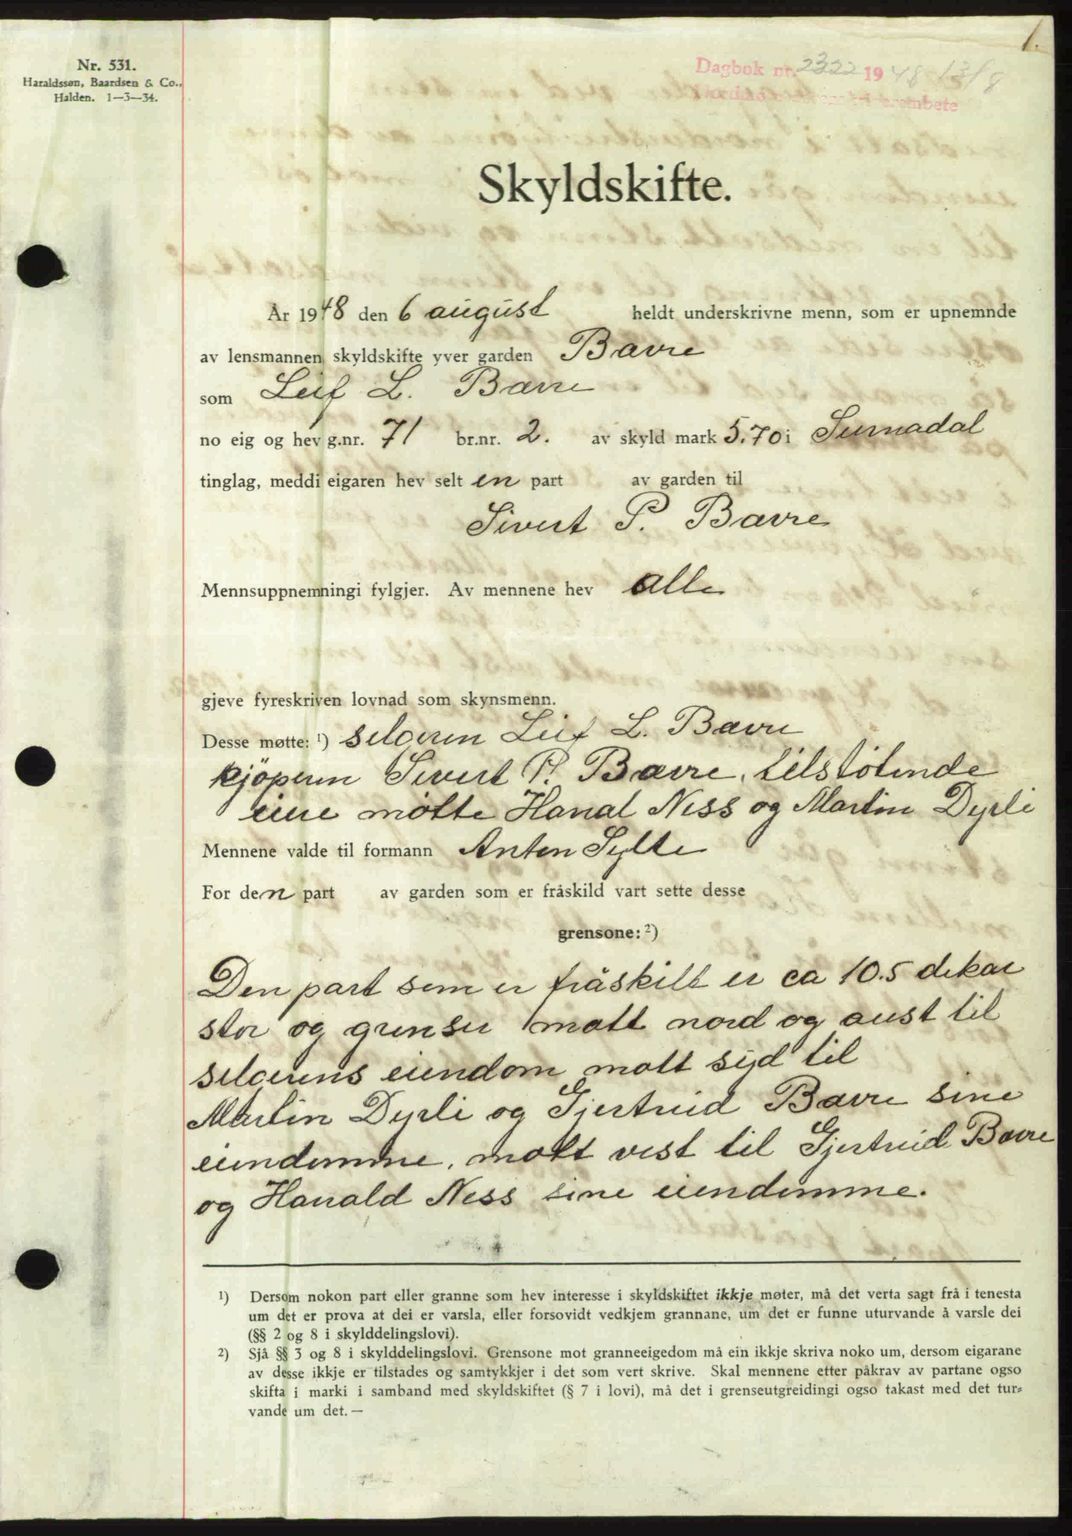 1.
Nr. 531.
Haraldssøn, Baardsen & Co.,
Halden. 1—3—34.
Dagbok nr. 2322 1948 13/8
Skyldskifte.
År 1948 den 6 august heldt underskrivne menn, som er upnemnde
av lensmannen skyldskifte yver garden Bævre
som Leif L. Bævre
no eig og hev g.nr. 71 br.nr. 2. av skyld mark 5.70 i Surnadal
tinglag, meddi eigaren hev selt en part av garden til
Sivert P. Bævre
Mennsuppnemningi fylgjer. Av mennene hev alle
gjeve fyreskriven lovnad som skynsmenn.
Desse møtte: ¹) selgeren Leif L. Bævre
kjöperen Sivert P. Bævre, tilstötende
eiere mötte Harral Ness og Martin Dyrli
Mennene valde til formann Anton Sylte
For den part av garden som er fråskild vart sette desse
grensone: ²)
Den part som er fråskilt er ca 10.5 dekar
stor og grenser mott nord og aust til
selgerens eiendom mott syd til
Martin Dyrli og Gjertrud Bævre sine
eiendomme, mott vest til Gjertrud Bævre
og Harrald Ness sine eiendomme.
¹) Dersom nokon part eller granne som hev interesse i skyldskiftet ikkje møter, må det verta sagt frå i tenesta
um det er prova at dei er varsla, eller forsovidt vedkjem grannane, um det er funne uturvande å varsle dei
(§§ 2 og 8 i skylddelingslovi).
²) Sjå §§ 3 og 8 i skylddelingslovi. Grensone mot granneeigedom må ein ikkje skriva noko um, dersom eigarane
av desse ikkje er tilstades og samtykkjer i det som vert skrive. Skal mennene etter påkrav av partane ogso
skifta i marki i samband med skyldskiftet (§ 7 i lovi), må det i grenseutgreidingi ogso takast med det tur-
vande um det. —